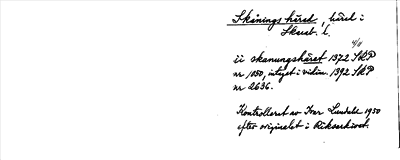 Skånings härad, härad i
Skarab. l.
4/11
ii skanungshäret 1372 SRP
nr 1050, intaget i vidim. 1392 SRP
nr 2636.
Kontrollerat av Ivar Lundahl 1950
efter originalet i Riksarkivet.